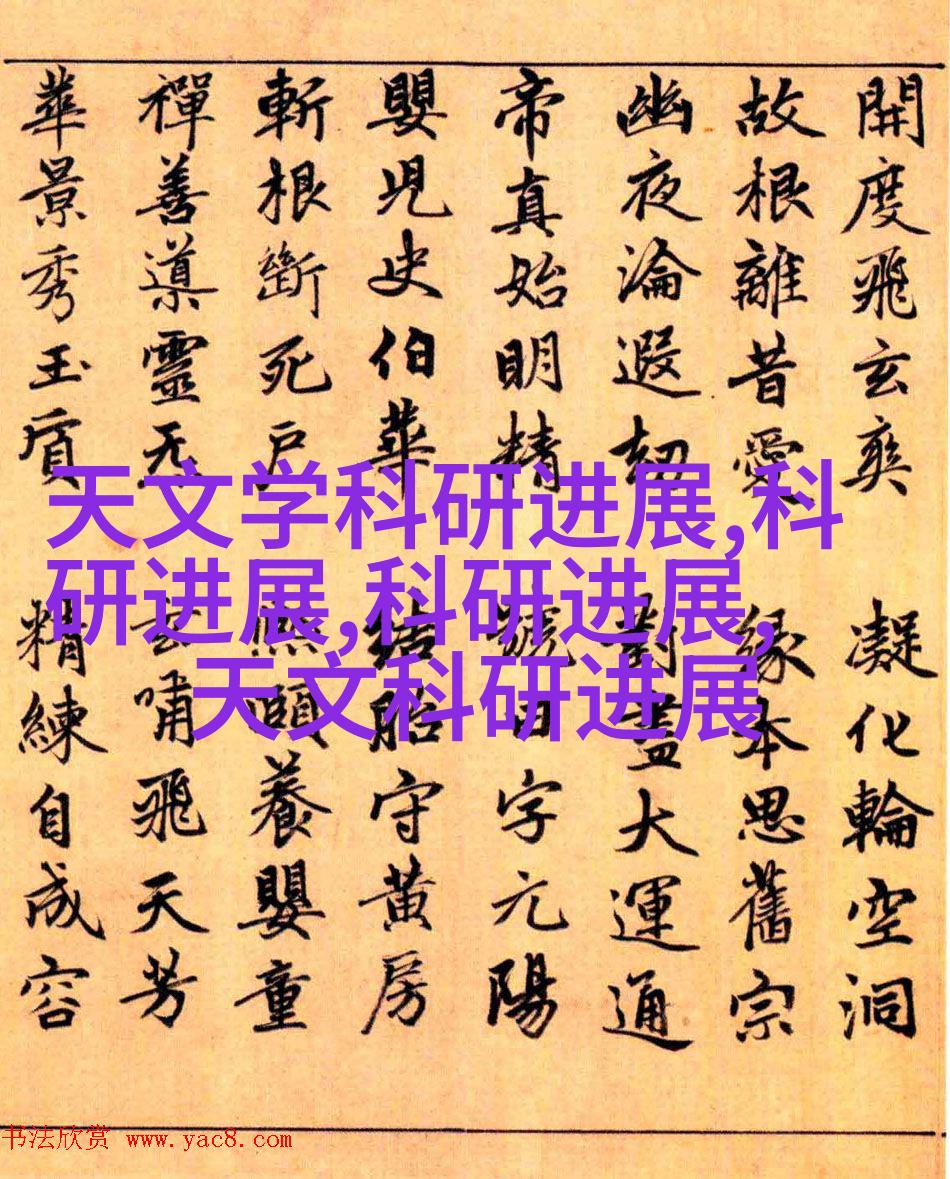 開度飛玄爽 凝化輪空洞
故根離昔愛 緣本思舊宗
幽夜淪遐劫 對盡大運通
帝真始明精 號曰字元陽
嬰兒史伯華 結胎守黃房
斬根斷死戶 熙頤養嬰童
禪善導靈无 玄嘯飛天芳
華景秀玉質 精練自成容
天文学科研进展,科
研进展,科研进展,
天文科研进展
书法欣赏 www.yac8.com